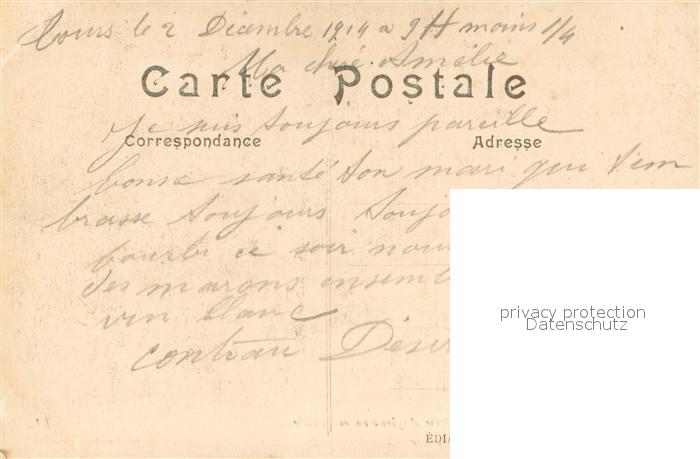 Tours le 2 Décembre 1914 a 9H moins 1/4
Ma cher Amélie
Carte Postale
je suis toujours pareille
Correspondance
Adresse
bonne santé ton mari qui t'em
brasse toujours
ce soir nou
des marons ensemb
vin blanc
privacy protection
Datenschutz
ÉDI